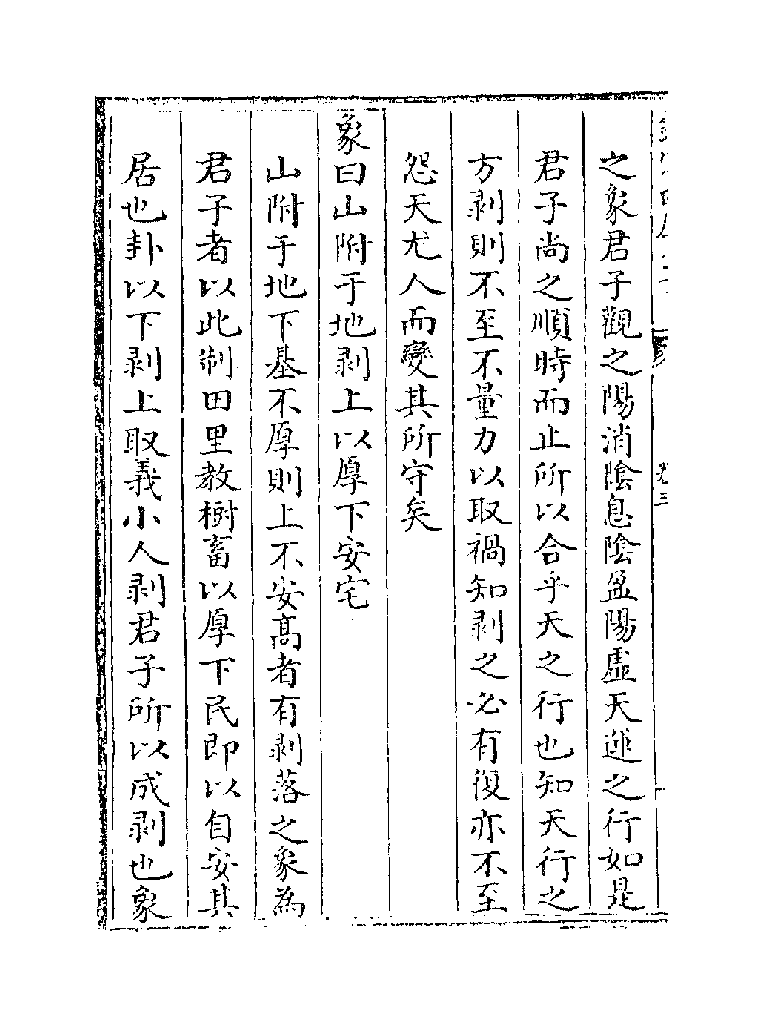 之象君子觀之陽消陰息陰盈陽虛天運之行如是
君子尚之順時而止所以合乎天之行也知天行之
方剥則不至不量力以取禍知剥之必有復亦不至
怨天尤人而變其所守矣
象曰山附于地剥上以厚下安宅
山附于地下基不厚則上不安髙者有剥落之象為
君子者以此制田里教樹畜以厚下民即以自安其
居也卦以下剥上取義小人剥君子所以成剥也象